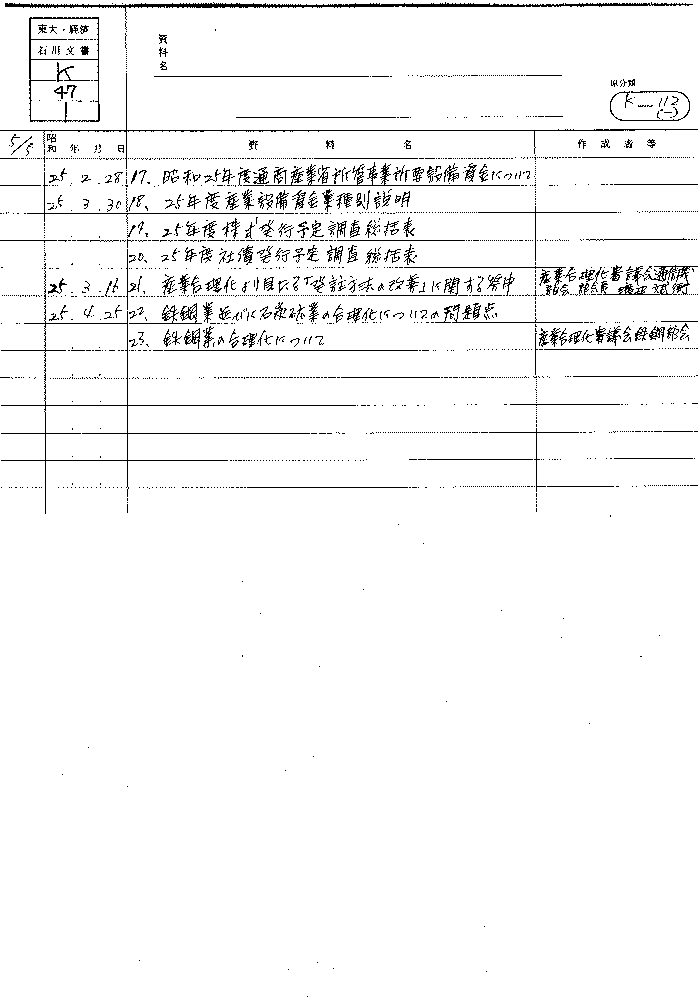 東大・経済
石川文書
K
47
1
資料名
原分類
K—112
(-)
5/5
昭和 年 月 日 資料名 作成者等
25. 2. 28 17. 昭和25年度通商産業省所管事業所要設備資金について
25. 3. 30 18. 25年度産業設備資金業種別説明
19. 25年度株式発行予定調査総括表
20. 25年度社債発行予定調査総括表
25. 3. 16 21. 産業合理化より見たる「発註方法の改善」に関する答申 産業合理化審議会通信機
部会 部会長
25. 4. 25 22. 鉄鋼業並びに石炭砿業の合理化についての問題点
23. 鉄鋼業の合理化について 産業合理化審議会鉄鋼部会